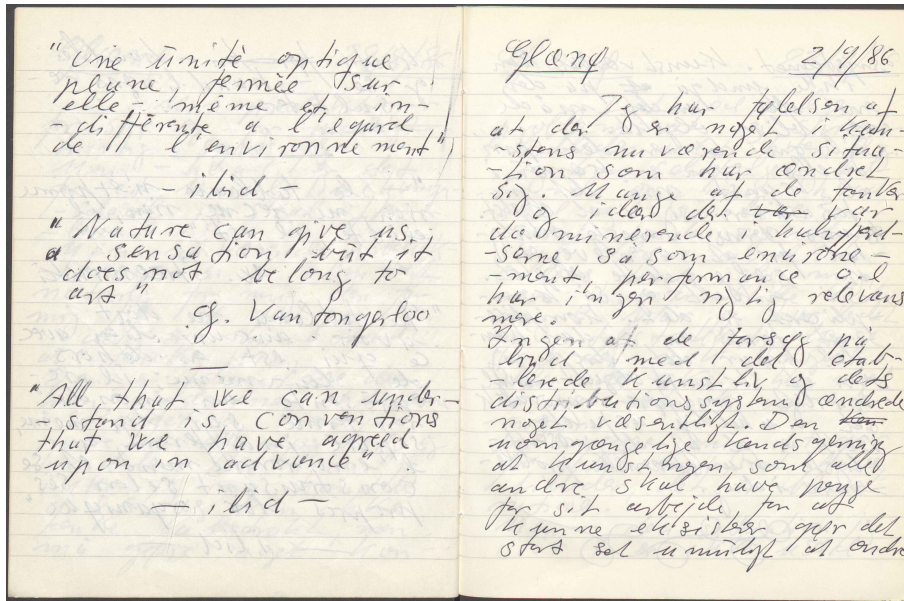 "Une ünité optique
plane, fermée sur
elle-même et in-
-différente a l'egard
de l'environnement"
- ibid -
"Nature can give us
a sensation but it
does not belong to
art"
G. Vantongerloo
—
"All that we can under-
-stand is conventions
that we have agreed
upon in advance".
- ibid -
Glænø 2/9/86
Jeg har følelsen af
at der er noget i kun-
-stens nuværende situa-
-tion som har ændret
sig. Mange af de tanker
og ideer der var
dominerende i halvfjerd-
-serne så som environe-
-ment, performance o.l
har ingen rigtig relevans
mere.
Ingen af de forsøg på
brud med det etab-
-lerede kunstliv og dets
distributionssystem ændrede
noget væsentligt. Den
uomgængelige kendsgerning
at kunstneren, som alle
andre skal have penge
for sit arbejde for at
kunne eksistere gør det
stort set umuligt at ændre